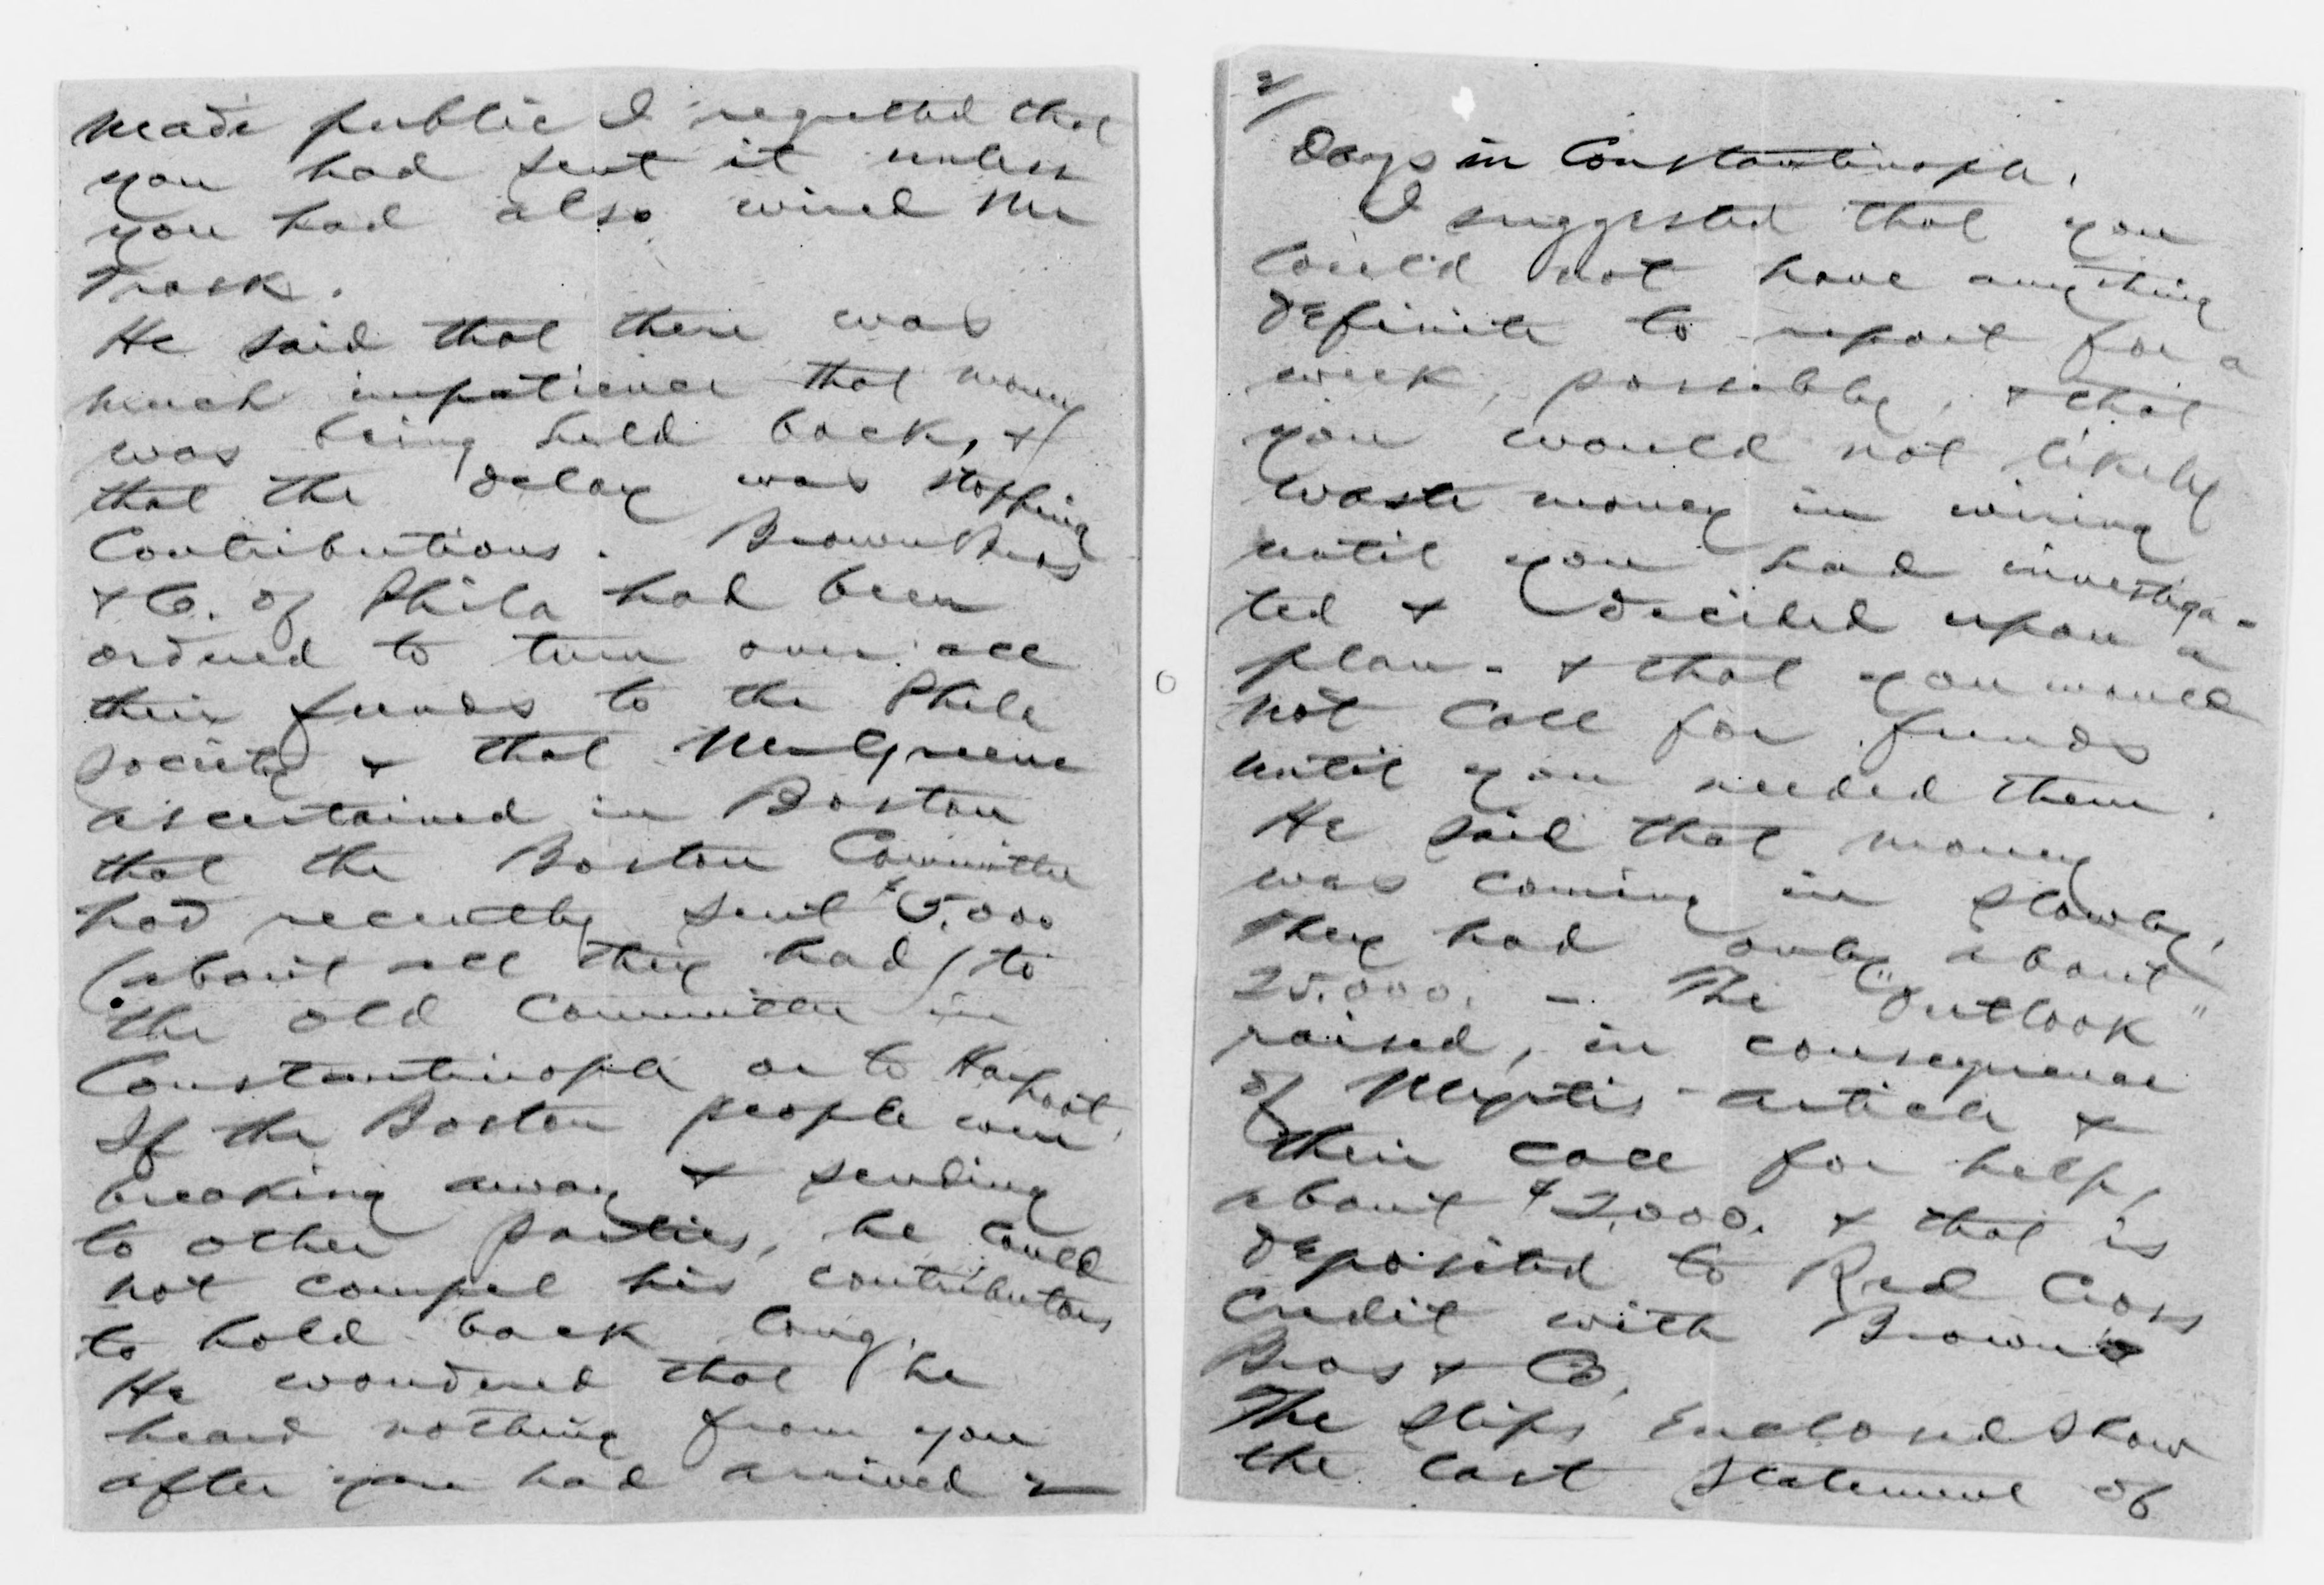 made public I regretted that
you had sent it unless
you had also wired Mr
Trask.
He said that there was
much impatience that money
was being held back, &
that the delay was stopping
Contributions. Brown Bros
& Co. of Phila had been
ordered to turn over all
their funds to the Phila
Society & that Mr Greene
ascertained in Boston
that the Boston Committee
had recently sent $5.000
(about all they had) to
the old Committee in
Constantinople or to Harpoot.
If the Boston people were
breaking away & sending
to other parties, he could
not compel his contributors
to hold back long.
He wondered that he
heard nothing from you
after you had arrived 2
2/
Days in Constantinople.
I suggested that you
could not have anything
definite to report for a
week, possibly, & that
you would not likely
waste money in wiring
until you had investiga-
ted & decided upon a
plan - & that you would
not call for funds
until you needed them.
He said that money
was coming in slowly,
They had only about
25.000. - The "Outlook"
raised, in consequence
of article &
their call for help,
about $2,000. & that is
deposited to Red Cross
Credit with Brown
Bros & Co.
The slips enclosed show
the last statement of